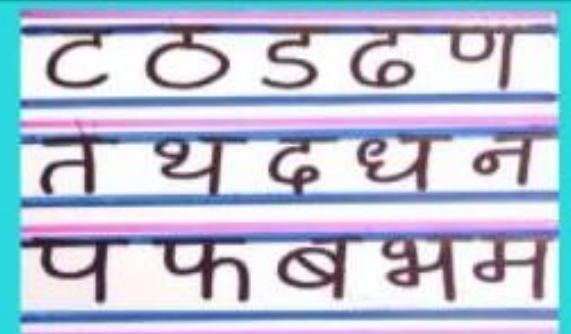 ट ठ ड ढ ण
त थ द ध न
प फ ब भ म